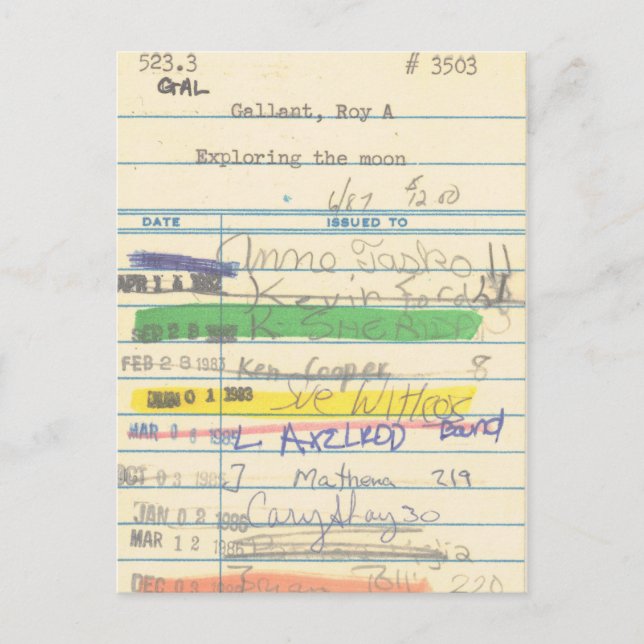 523.3 # 3503
GAL
Gallant, Roy A
Exploring the moon
6/87 $12.00
DATE ISSUED TO
Anne Tasko 11
APR 1 4 Kevin Ford
SEP 2 9 K. SHERIDAN
FEB 28 1983 Ken Cooper 8
JUN 0 1 1983 Sue Wittcos
MAR 0 6 1985 L AXELROD Bound
OCT 0 3 1985 J Mathena 219
JAN 0 2 1986 Cary Shay 30
MAR 1 2 1986
DEC 0 3 Brian 220